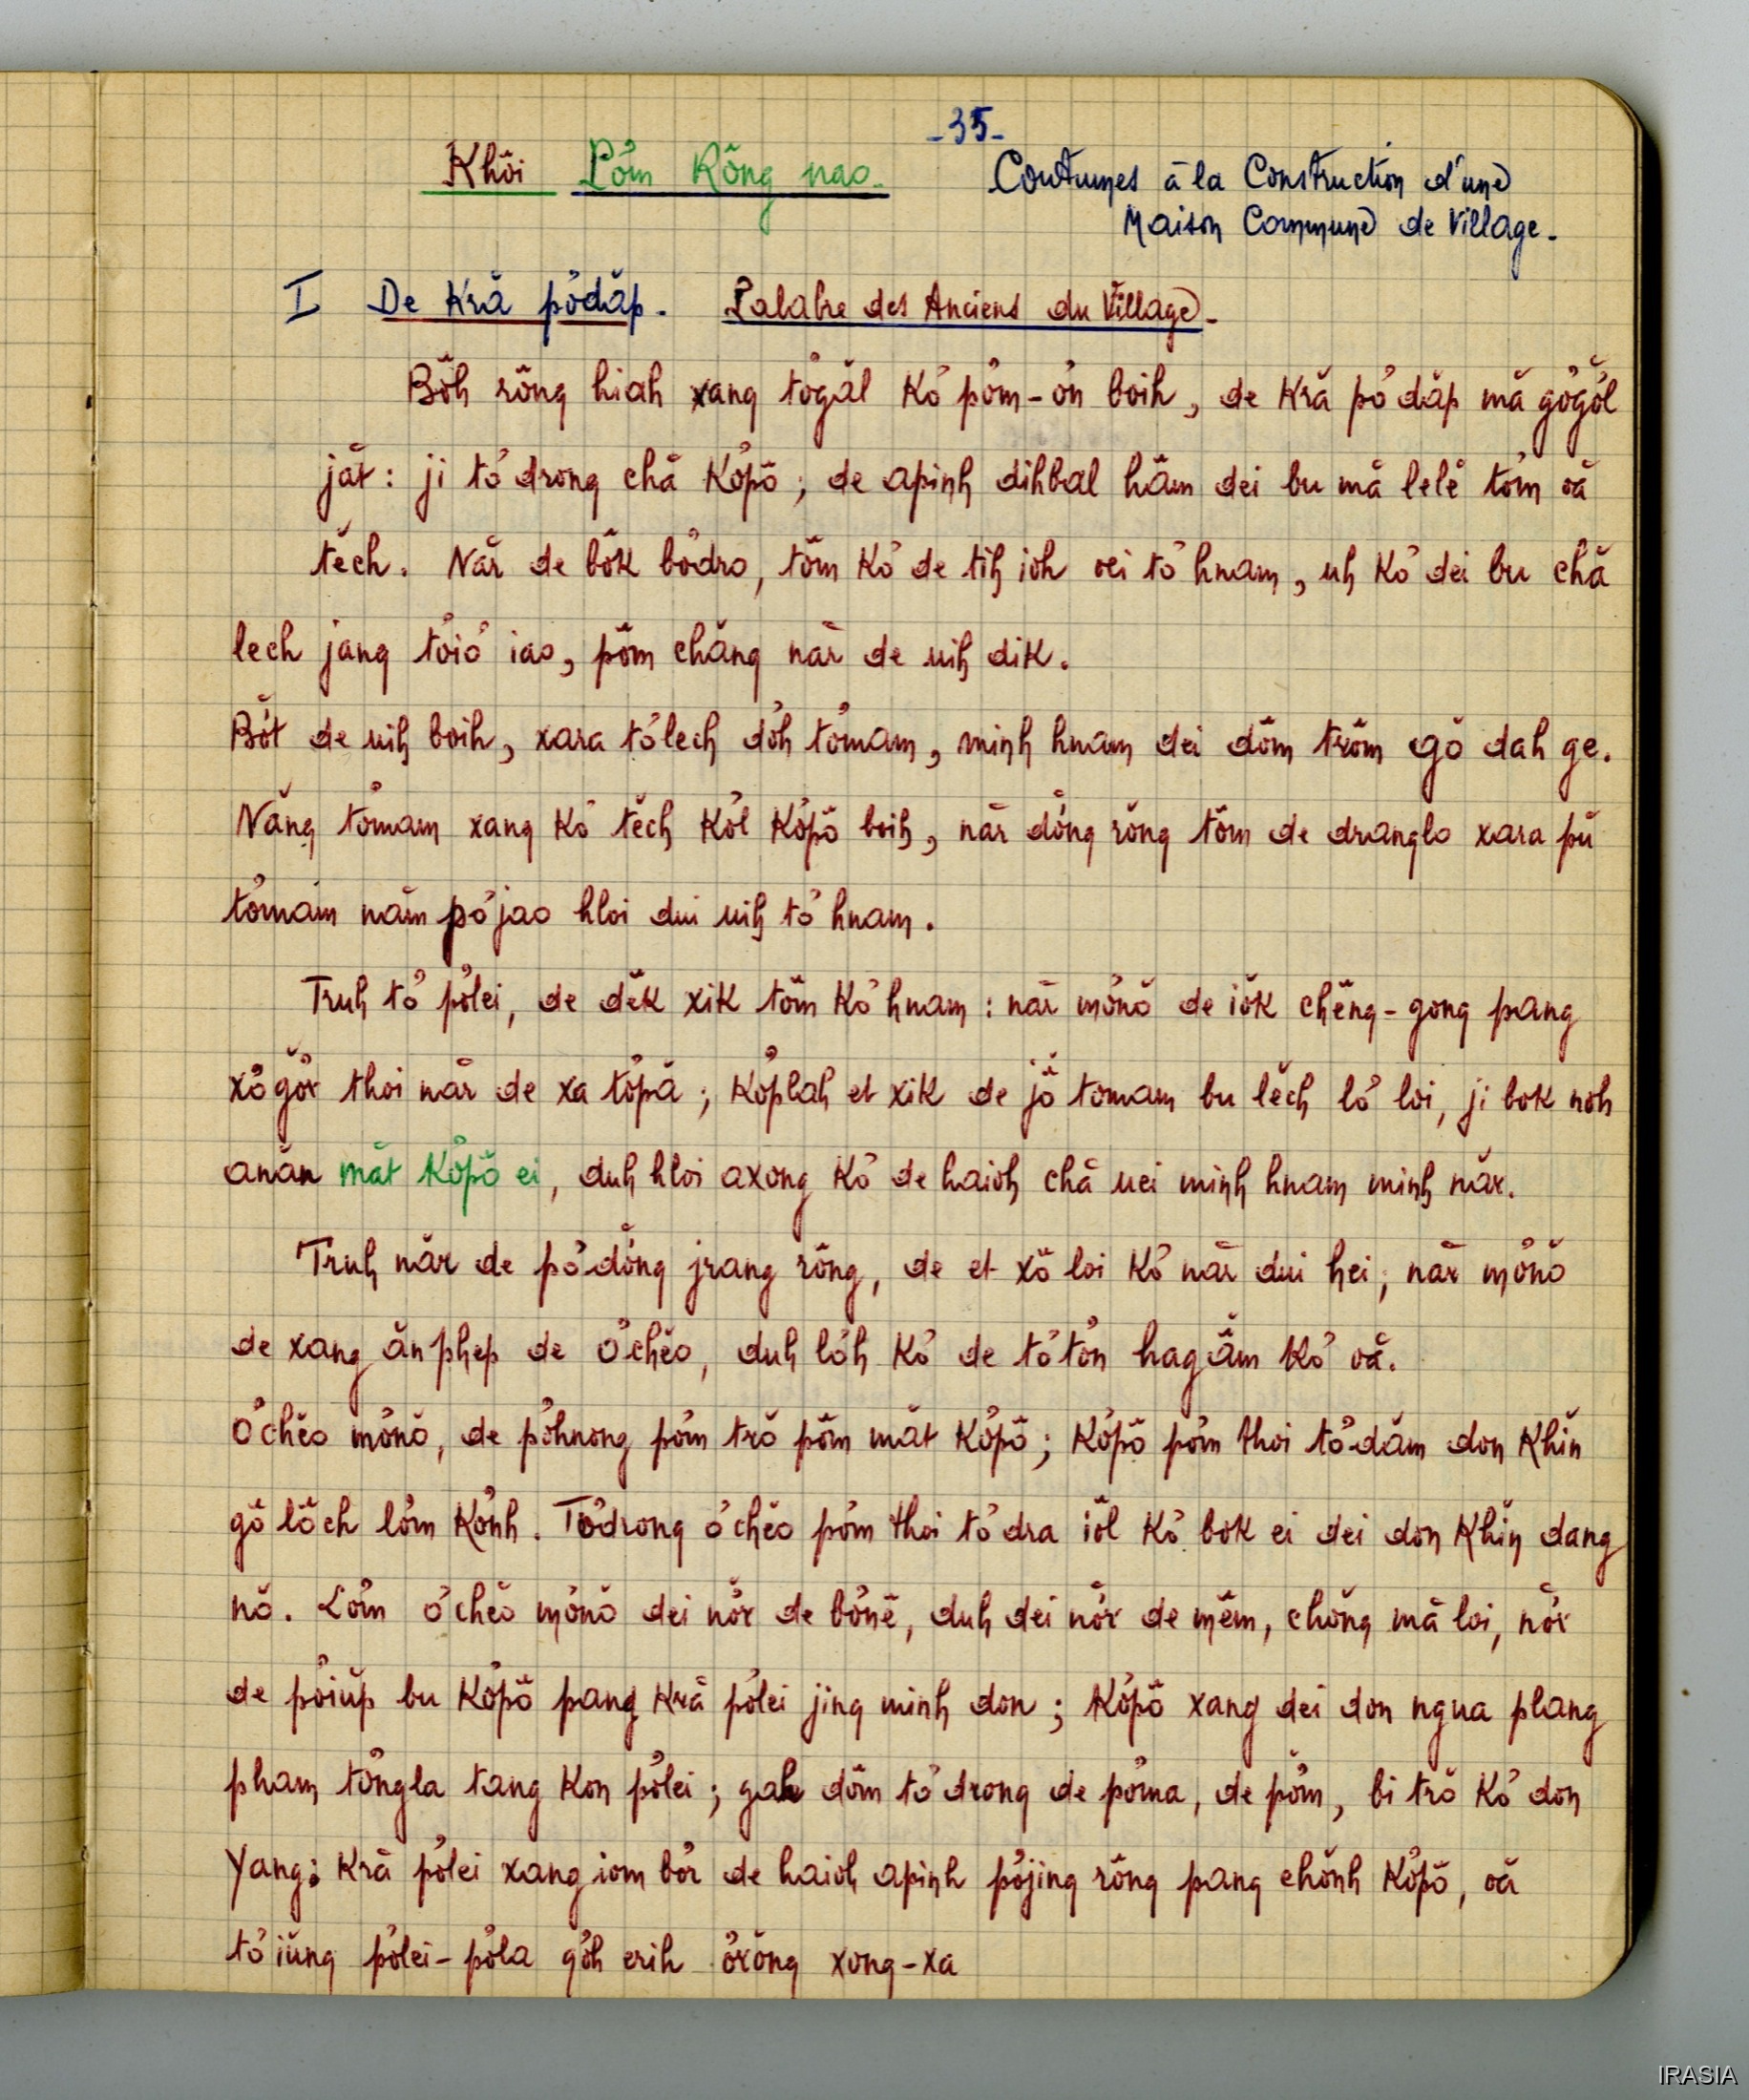 -35-
Khôi Pơ̆m Rông nao. Coutumes à la Construction d'une
Maison Commune de Village.
I De Kră pơdăp. Palabre des Anciens du Village.
Bơ̆h rông hiah xang tơgăl kơ pơ̆m-ơ̆n boih, de Kră pơ dăp mă gơgơ̆l
jăt: ji tơ drong chă Kơpô; de apinh dihbal hăm dei bu mă lelĕ tơ̆m oă
tĕch. Năr de bôk bơdro, tôm kơ de tih ioh oei tơ hnam, uh kơ dei bu chă
lech jang tơiơ iao, pôm chăng năr de uih dik.
Bơ̆t de uih boih, xara tơlech dơ̆h tơmam, minh hnam dei dôm trôm gô dah ge.
Năng tơmam xang kơ tĕch kơ̆l Kơpô boih, năr dơ̆ng rŏng tôm de dranglo xara pŭ
tơmam năm pơjao hloi dui uih tơ hnam.
Truh tơ pơlei, de dĕk xik tôm kơ hnam: năr mơ̆nŏ de iŏk chĕng-gong pang
xơgơ̆r thoi năr de xa tơpă; kơplah et xik de jô tomam bu lĕch lơ loi, ji bok noh
anăn măt Kơpô ei, duh hloi axong kơ de haioh chă uei minh hnam minh năr.
Truh năr de pơdơ̆ng jrang rông, de et xô loi kơ năr dui hei; năr mơ̆nŏ
de xang ăn phep de ơchĕo, duh lơ̆h kơ de tơtơ̆n hagăm kơ oă.
Ơchĕo mơ̆nŏ, de pơhnong pơ̆m trŏ pôm măt Kơpô; Kơpô pơ̆m thoi tơdăm don Khĭn
gô lôch lơ̆m Kơ̆nh. Tơdrong ơchĕo pơ̆m thoi tơdra iŏl kơ bok ei dei don Khĭn dang
nŏ. Lơ̆m ơchĕo mơ̆nŏ dei nơ̆r de bơnê, duh dei nơ̆r de mêm, chŏng mă loi, nơ̆r
de pơiŭp bu Kơpô pang Kră pơlei jing minh don; Kơpô xang dei don ngua plang
pham tơngla tang Kon pơlei; gah dôm tơ drong de pơma, de pơ̆m, bi trŏ kơ don
Yang; Kră pơlei xang iom bơ̆r de haioh apinh pơjing rông pang chŏnh Kơpô, oă
tơiŭng pơlei-pơla gơ̆h erih ơrŏng xong-xa
IRASIA